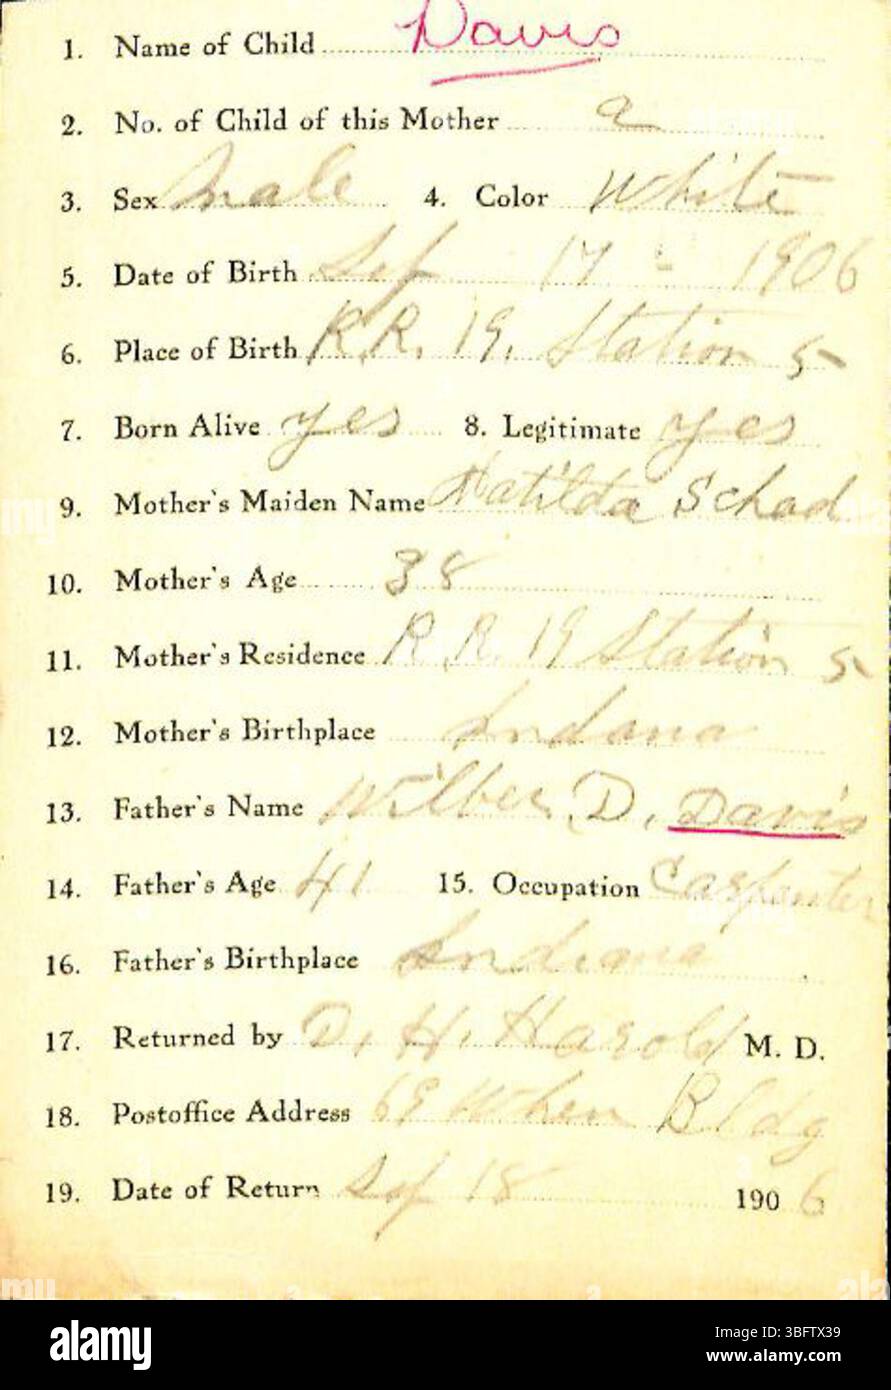 1. Name of Child Davis
2. No. of Child of this Mother
3. Sex Male 4. Color White
5. Date of Birth Sep 17 - 1906
6. Place of Birth R.R. 19. Station 5
7. Born Alive yes 8. Legitimate yes
9. Mother's Maiden Name Matilda Schad
10. Mother's Age 38
11. Mother's Residence R R. 19 Station 5
12. Mother's Birthplace Indana
13. Father's Name Wilber D. Davis
14. Father's Age 41 15. Occupation Carpenter
16. Father's Birthplace Indiana
17. Returned by D. H. Harold M. D.
18. Postoffice Address 69 When Bldg
19. Date of Return Sep 18 1906
alamy
Image ID: 3BFTX39
www.alamy.com